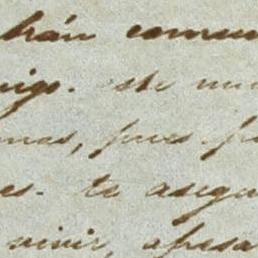 brán comun
migo. He
nas, pues p
es. te asegu
vivir, apesa